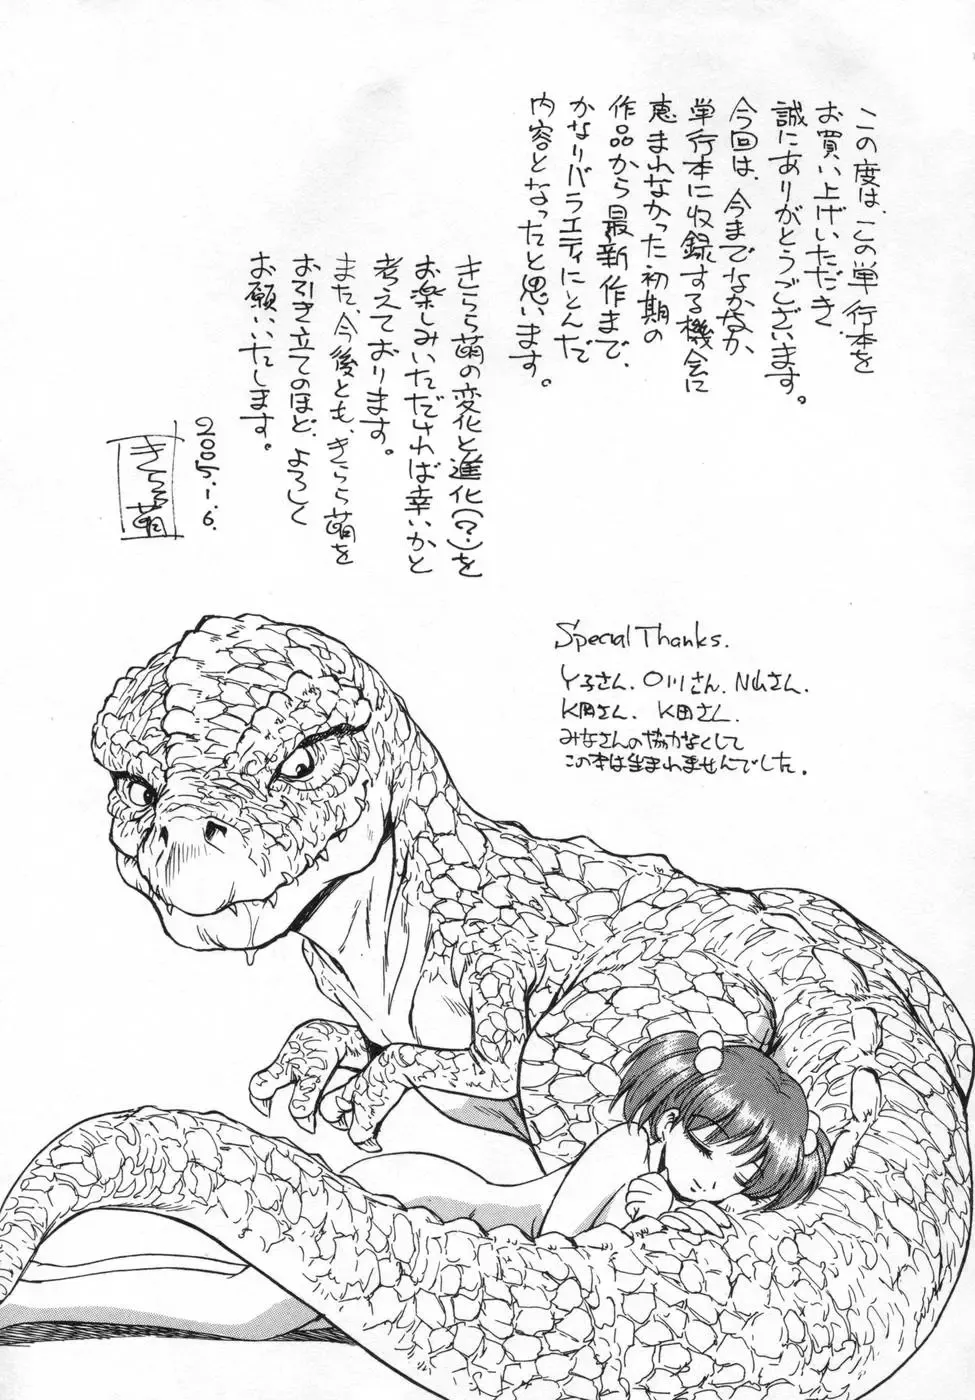 この度は、この単行本を
お買い上げいただき、
誠にありがとうございます。
今回は、今までなかなか
単行本に収録する機会に
恵まれなかった初期の
作品から最新作まで、
かなりバラエティにとんだ
内容となったと思います。
きらら萌の変化と進化(?)を
お楽しみいただければ幸いかと
考えております。
また、今後とも、きらら萌を
お引き立てのほど、よろしく
お願いいたします。
2005.1.6.
きらら萌
Special Thanks.
Y子さん、O川さん、N山さん、
K岡さん、K田さん、
みなさんの協力なくして
この本は生まれませんでした。